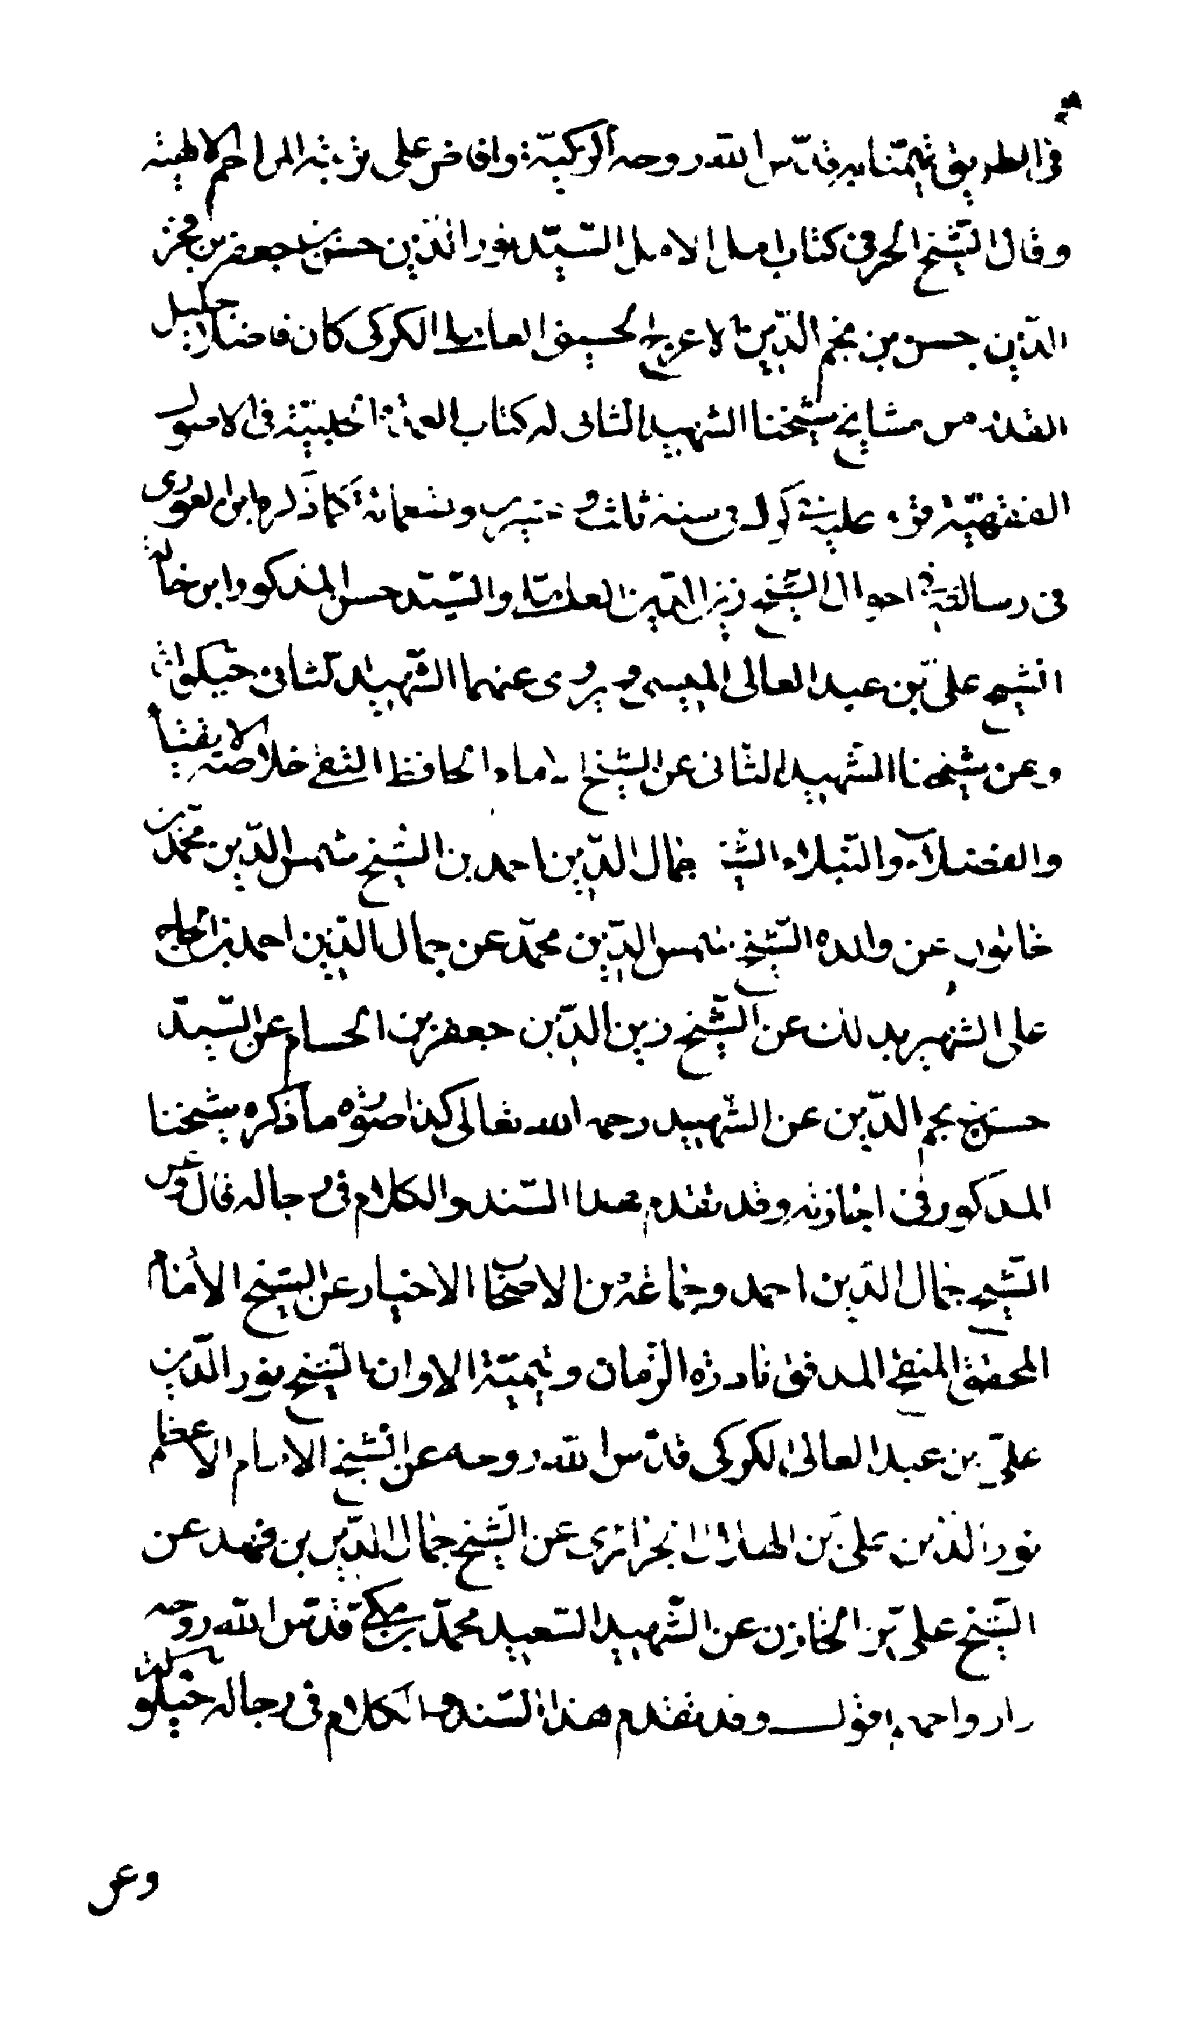 في الطريق تيمنا به قدس الله روحه الزكية وافاض على تربته المراحم الالهية
وقال الشيخ الحر في كتاب امل الامل السيد نور الدين حسن بن جعفر بن فخر
الدين حسن بن نجم الدين الاعرج الحسيني العاملي الكركي كان فاضلا جليل
القدر من مشايخ شيخنا الشهيد الثاني له كتاب العمدة الجليلية في الاصول
الفقهية قرء عليه في سنة ثلث و وتسعمائة كما ذكره ابن العودي
في رسالته في احوال الشيخ زين الدين العاملي والسيد حسن المذكور ابن خالة
الشيخ علي بن عبد العالي الميسي ويروى عنهما الشهيد الثاني حيلولة
وعن شيخنا الشهيد الثاني عن الشيخ الامام الحافظ التقي خلاصة الاتقياء
والفضلاء والنبلاء الشيخ جمال الدين احمد بن الشيخ شمس الدين محمد بن
خاتون عن والده الشيخ شمس الدين محمد عن جمال الدين احمد بن الحاج
علي الشهير بذلك عن الشيخ زين الدين جعفر بن الحسام عن السيد
حسن بن نجم الدين عن الشهيد رحمه الله تعالى كذا صورة ما ذكره شيخنا
المذكور في اجازته وقد تقدم هذا السند والكلام في رجاله قال وعن
الشيخ جمال الدين احمد وجماعة من الاصحاب الاخيار عن الشيخ الامام
المحقق المنقح المدقق نادرة الزمان ويتيمة الاوان الشيخ نور الدين
علي بن عبد العالي الكركي قدس الله روحه عن الشيخ الامام الاعظم
نور الدين علي بن الهلال الجزائري عن الشيخ جمال الدين بن فهد عن
الشيخ علي بن الخازن عن الشهيد السعيد محمد بن مكي قدس الله روحه
اقول وقد تقدم هذا السند والكلام في رجاله حيلولة
وعن